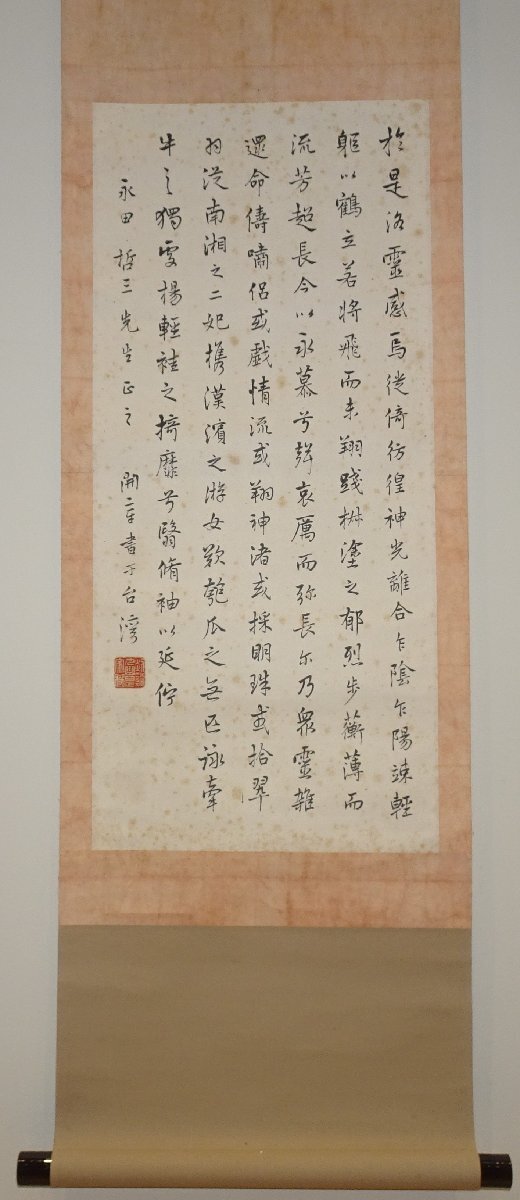 於是洛靈感焉徙倚彷徨神光離合乍陰乍陽竦輕
軀以鶴立若將飛而未翔踐椒塗之郁烈步蘅薄而
流芳超長今以永慕兮聲哀厲而弥長尓乃衆靈雜
遝命儔嘯侶或戲清流或翔神渚或採明珠或拾翠
羽從南湘之二妃携漢濱之游女歎匏瓜之無匹詠牽
牛之獨處揚輕袿之猗靡兮翳脩袖以延佇
永田哲三先生正之 開章書于台灣